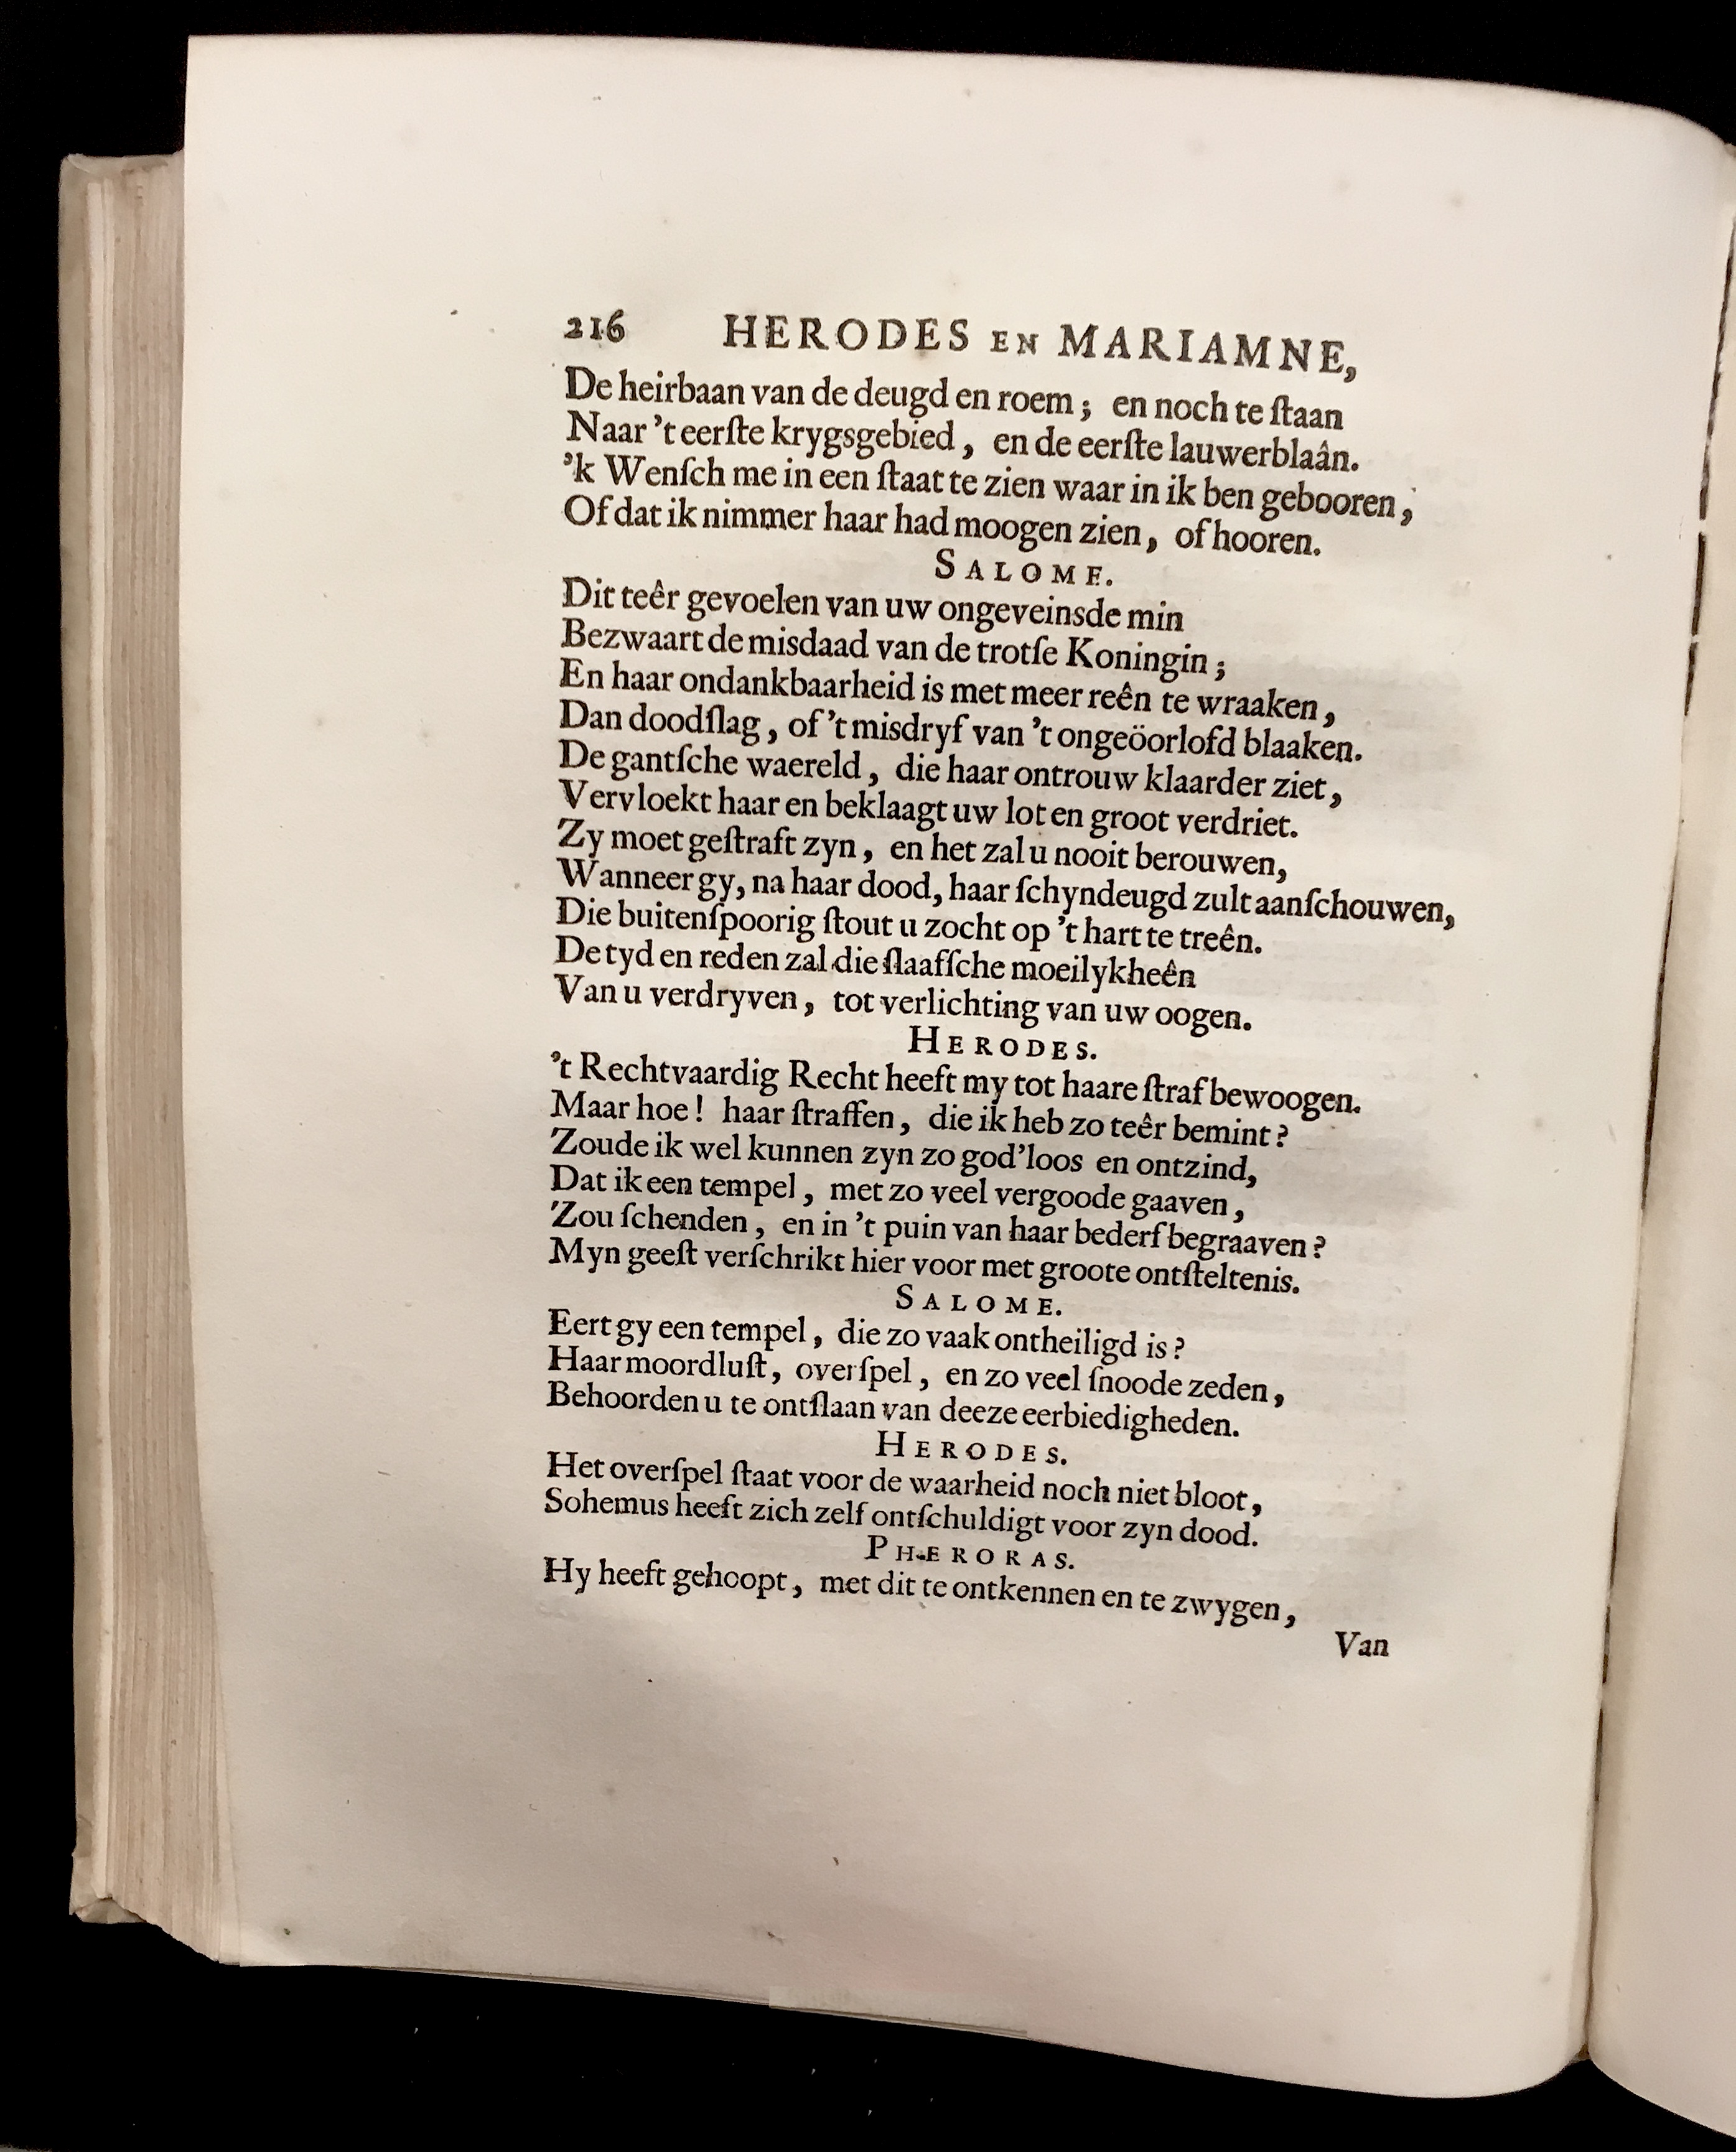 216 HERODES EN MARIAMNE,
De heirbaan van de deugd en roem; en noch te ſtaan
Naar 't eerſte krygsgebied, en de eerſte lauwerblaân.
'k Wenſch me in een ſtaat te zien waar in ik ben gebooren,
Of dat ik nimmer haar had moogen zien, of hooren.
SALOME.
Dit teêr gevoelen van uw ongeveinsde min
Bezwaart de misdaad van de trotſe Koningin;
En haar ondankbaarheid is met meer reên te wraaken,
Dan doodſlag, of 't misdryf van 't ongeöorlofd blaaken.
De gantſche waereld, die haar ontrouw klaarder ziet,
Vervloekt haar en beklaagt uw lot en groot verdriet.
Zy moet geſtraft zyn, en het zal u nooit berouwen,
Wanneer gy, na haar dood, haar ſchyndeugd zult aanſchouwen,
Die buitenſpoorig ſtout u zocht op 't hart te treên.
De tyd en reden zal die ſlaafſche moeilykheên
Van u verdryven, tot verlichting van uw oogen.
HERODES.
't Rechtvaardig Recht heeft my tot haare ſtraf bewoogen.
Maar hoe! haar ſtraffen, die ik heb zo teêr bemint?
Zoude ik wel kunnen zyn zo god'loos en ontzind,
Dat ik een tempel, met zo veel vergoode gaaven,
Zou ſchenden, en in 't puin van haar bederf begraaven?
Myn geeſt verſchrikt hier voor met groote ontſteltenis.
SALOME.
Eert gy een tempel, die zo vaak ontheiligd is?
Haar moordluſt, overſpel, en zo veel ſnoode zeden,
Behoorden u te ontſlaan van deeze eerbiedigheden.
HERODES.
Het overſpel ſtaat voor de waarheid noch niet bloot,
Sohemus heeft zich zelf ontſchuldigt voor zyn dood.
PHÆRORAS.
Hy heeft gehoopt, met dit te ontkennen en te zwygen,
Van